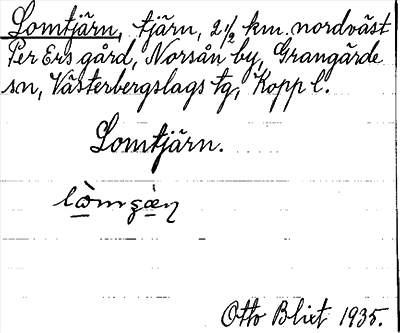 Lomtjärn, tjärn, 2 1/2 km nordväst
Per Ers gård, Norsån by, Grangärde
sn, Västerbergslags tg, Kopp l.
Lomtjärn.
Otto Blixt 1935.